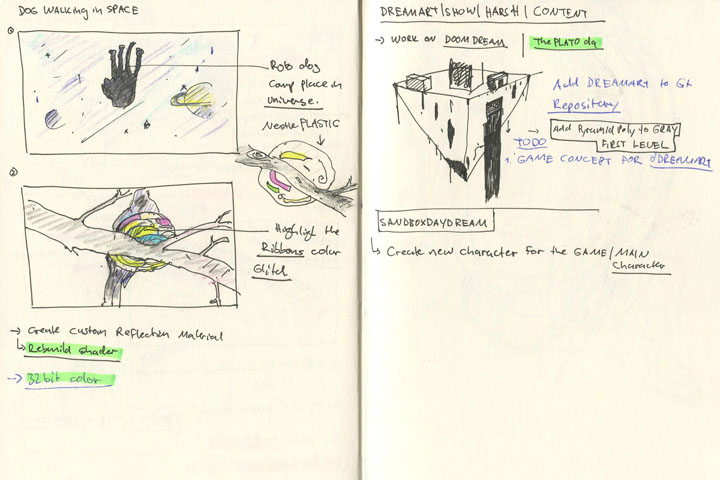 DOG WALKING in SPACE
①
Robo dog
Camp place in
universe.
PLASTIC
②
Highlight the
Ribbons color
Glitch
→ Create custom Reflection Material
Rebuild shader
→ 32bit color
DREAMART|SHOW|HARSH| CONTENT
→ WORK ON DOOMDREAM | the PLATO dq
Add DREAMART to Git
Repository
→ Add Pyramid Poly to GRAY
FIRST LEVEL
TODO
1. GAME CONCEPT FOR DREAMART
SANDBOXDAYDREAM
Create new character for the GAME/MAIN
Character